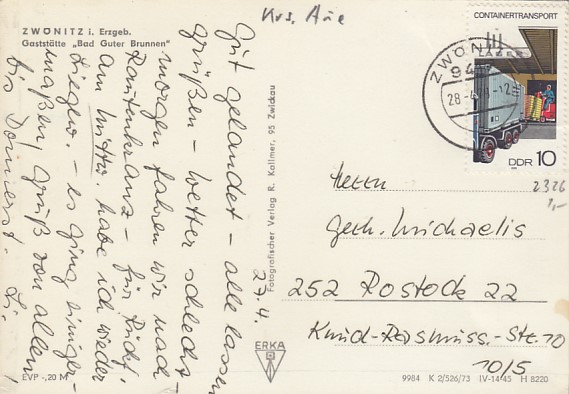 Krs. Aue
ZWÖNITZ i. Erzgeb.
Gaststätte „Bad Guter Brunnen"
Gut gelandet – alle lassen
grüßen – Wetter schlecht –
morgen fahren wir nach
Rautenkranz – für Rückf.
am Mittw. habe ich wieder
Liegew. – es ging einiger-
maßen, Gruß von allen
bis Donnerst.
27.4.
Fotografischer Verlag R. Kallmer, 95 Zwickau
ERKA
EVP -,20 M
CONTAINERTRANSPORT
DDR 10
ZWÖNITZ
28-4
-12
2326
1,-
Herrn
Gerh. Michaelis
252 Rostock 22
Knud-Rasmuss.-Str. 10
10/5
9984 K 2/526/73 IV-14-45 H 8220